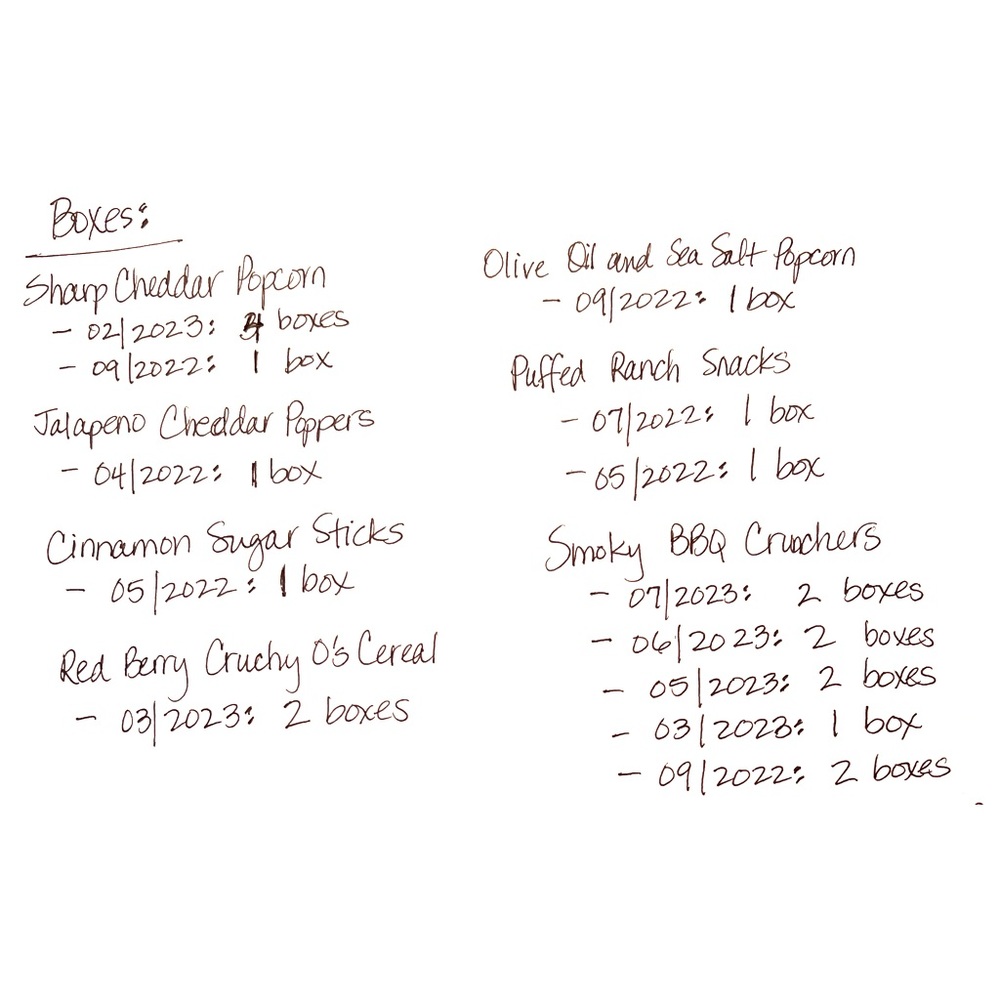 Boxes:
Sharp Cheddar Popcorn
- 02/2023: boxes
- 09/2022: 1 box
Jalapeno Cheddar Poppers
- 04/2022: 1 box
Cinnamon Sugar Sticks
- 05/2022: 1 box
Red Berry Cruchy O's Cereal
- 03/2023: 2 boxes
Olive Oil and Sea Salt Popcorn
- 09/2022: 1 box
Puffed Ranch Snacks
- 07/2022: 1 box
- 05/2022: 1 box
Smoky BBQ Crunchers
- 07/2023: 2 boxes
- 06/2023: 2 boxes
- 05/2023: 2 boxes
- 03/2023: 1 box
- 09/2022: 2 boxes